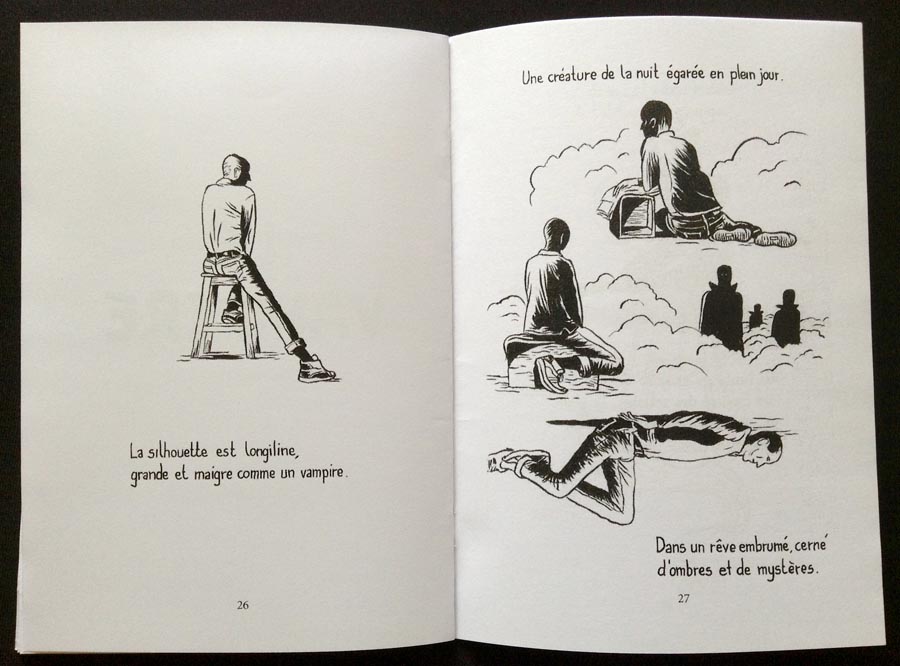 La silhouette est longiline,
grande et maigre comme un vampire.
26
Une créature de la nuit égarée en plein jour.
Dans un rêve embrumé, cerné
d'ombres et de mystères.
27